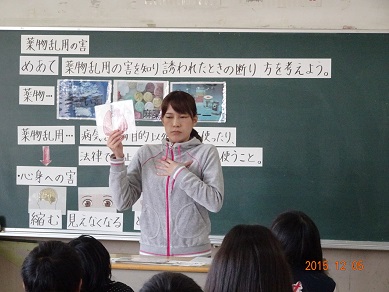 薬物乱用の害
めあて 薬物乱用の害を知り誘われたときの断り方を考えよう。
薬物…
薬物乱用… 病気 目的以 使ったり、
法律で 使うこと。
・心身への害
縮む 見えなくなる
2015 11 05